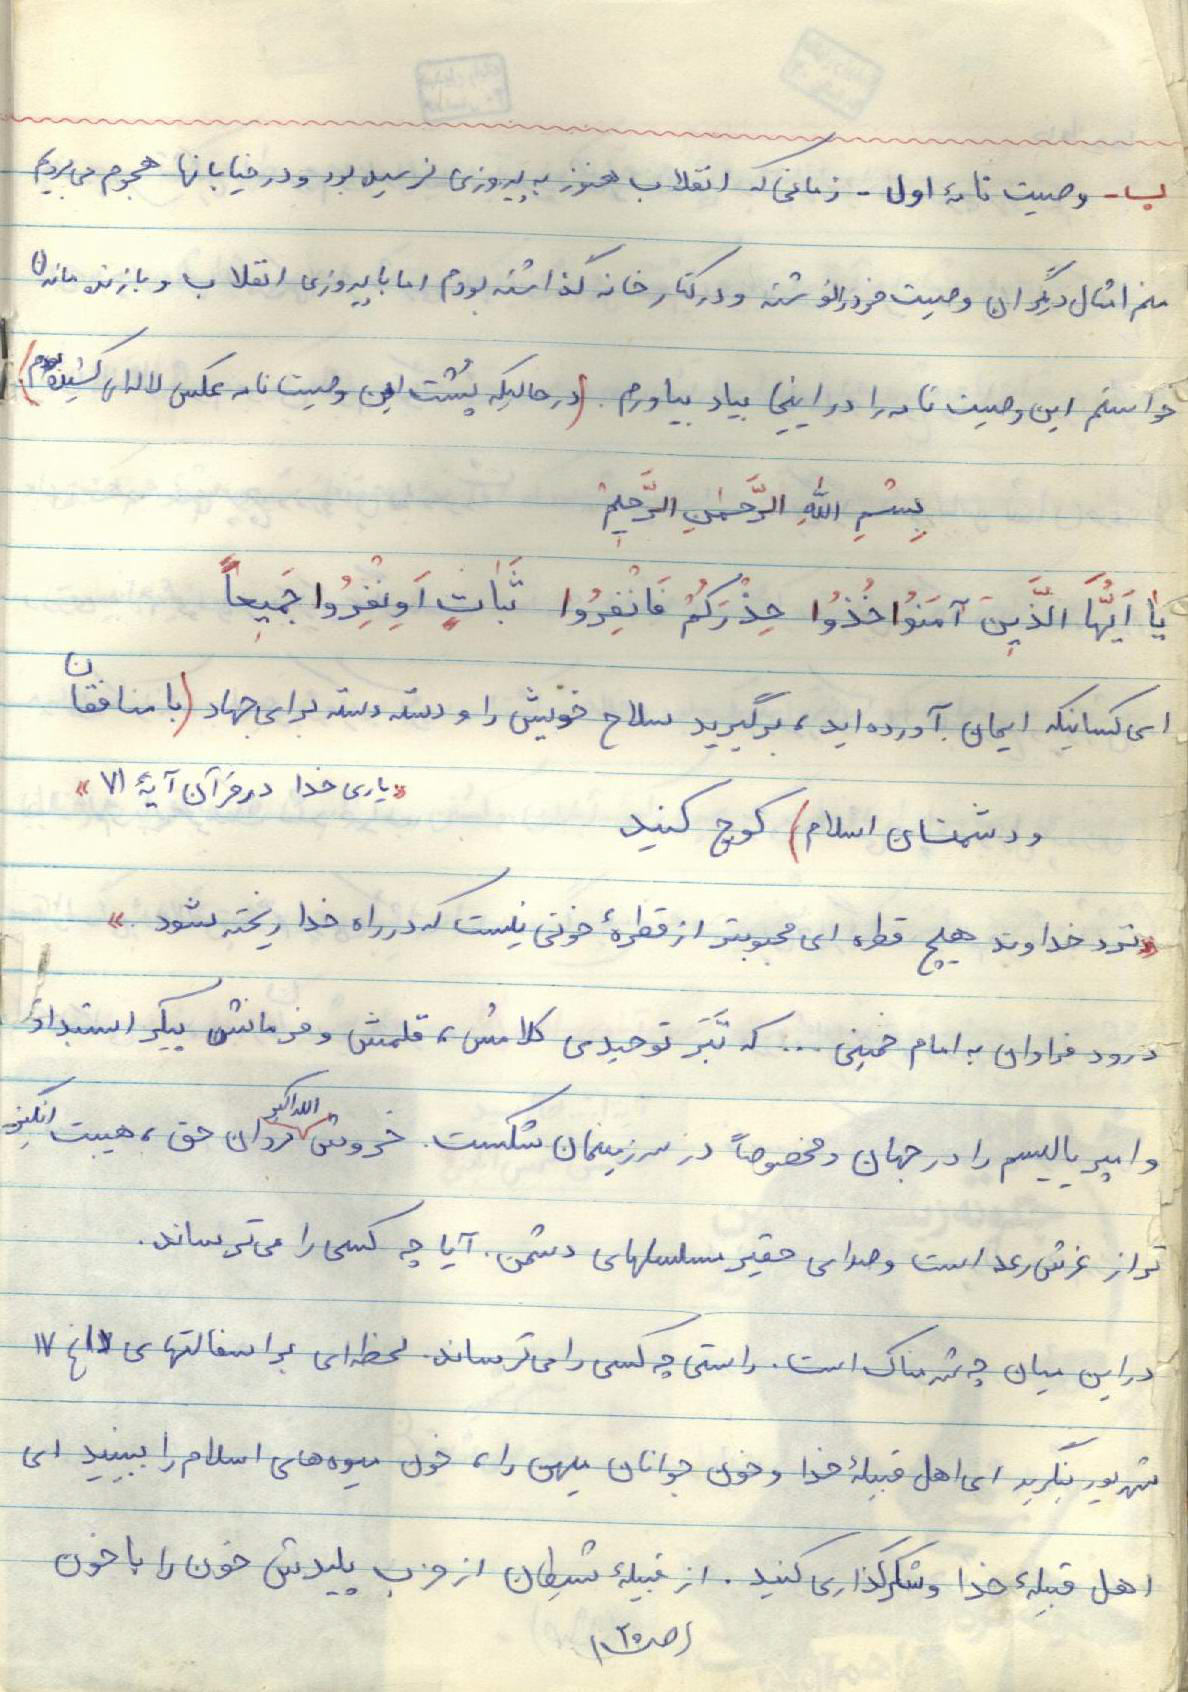 ب - وصیت نامهٔ اول - زمانی که انقلاب هنوز به پیروزی نرسیده بود و در خیابانها هجوم می بردیم
منم امثال دیگران وصیت خود را نوشته و در کنار خانه گذاشته بودم اما با پیروزی انقلاب و باز زنده ماندن
خواستم این وصیت نامه را در اینجا بیاد بیاورم. (در حالیکه پُشت این وصیت نامه عکس لاله ای کشیده بودم)
بِسْمِ اللّٰهِ الرَّحْمٰنِ الرَّحِیمْ
یٰا اَیُّهَا الَّذَّینَ آمَنُوا خُذُوا حِذْرَکُمْ فَانْفِرُوا ثَبٰاتٍ اَوِنْفِرُوا جَمیعاً
ای کسانیکه ایمان آورده اید، برگیرید سلاح خویش را و دسته دسته برای جهاد (با منافقان
و دشمنان اسلام) کوچ کنید «یاری خدا در قرآن آیهٔ ۷۱»
«نزد خداوند هیچ قطره ای محبوبتر از قطرهٔ خونی نیست که در راه خدا ریخته شود.»
درود فراوان به امام خمینی ... که تَبَر توحیدی کلامش، قلمش و فرمانش پیکر استبداد
و امپریالیسم را در جهان و مخصوصاً در سرزمینمان شکست. خروش الله اکبر مردان حق، هیبت انگیز
تر از غرش رعد است و صدای حقیر مسلسلهای دشمن. آیا چه کسی را می ترساند.
در این میان چه شرمناک است. راستی چه کسی را می ترساند. لحظه ای بر اسفالتهای داغ ۱۷
شهریور بنگرید ای اهل قبیلهٔ خدا و خون جوانان میهن را، خون میوه های اسلام را ببینید ای
اهل قبیلهٔ خدا و شکرگذاری کنید. از قبیلهٔ شیطان از حزب پلیدش خون را با خون
(ص ۲۵)